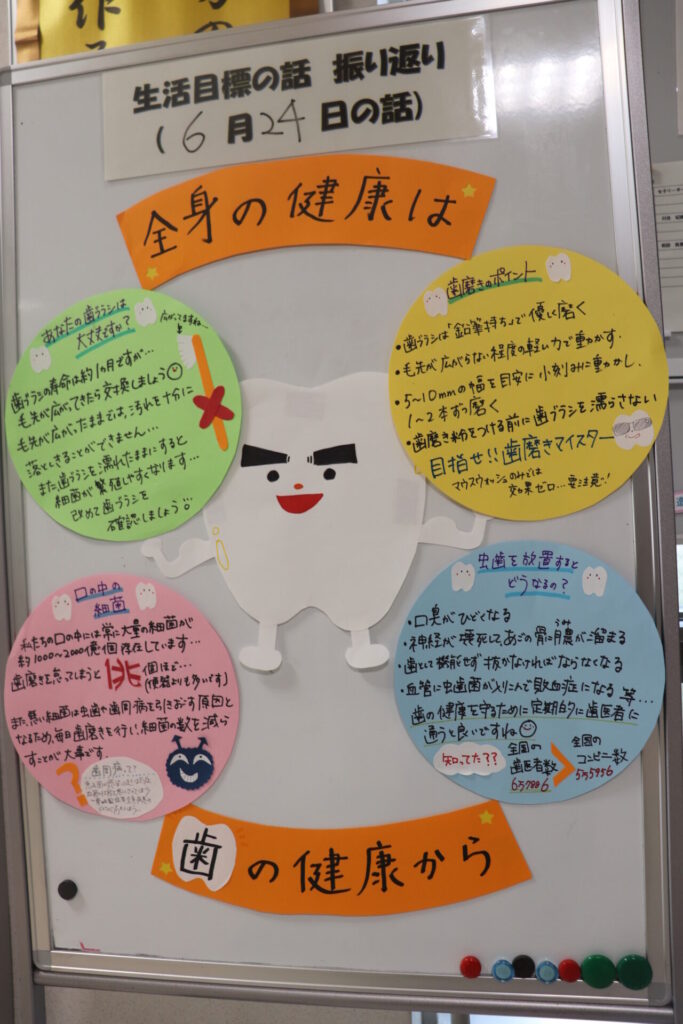 生活目標の話 振り返り
(6月24日の話)
全身の健康は
あなたの歯ブラシは
大丈夫ですか?
広がってますね…
歯ブラシの寿命は約1ヵ月ですが…
毛先が広がってきたら交換しましょう
毛先が広がったままでは、汚れを十分に
落としきることができません…
また、歯ブラシを濡れたままにすると
細菌が繁殖しやすくなります…
改めて歯ブラシを
確認しましょう!
歯磨きのポイント
・歯ブラシは「鉛筆持ち」で優しく磨く
・毛先が広がらない程度の軽い力で動かす.
・5~10mmの幅を目安に小刻みに動かし、
1~2本ずつ磨く
・歯磨き粉をつける前に歯ブラシを濡らさない
目指せ!!歯磨きマイスター
マウスウォッシュのみでは
効果ゼロ…要注意!
口の中の
細菌
私たちの口の中には常に大量の細菌が
約1000~2000億個存在しています…
歯磨きを怠ってしまうと兆個ほど…
(便器よりも多いです)
また、悪い細菌は虫歯や歯周病を引きおこす原因と
なるため、毎日歯磨きを行い、細菌の数を減ら
すことが大事です.
?
歯周病って?
虫歯を放置すると
どうなるの?
・口臭がひどくなる
・神経が壊死して、あごの骨に膿が溜まる
うみ
・歯として機能せず抜かなければならなくなる
・血管に虫歯菌が入りこんで敗血症になる 等…
歯の健康を守るために定期的に歯医者に
通うと良いですね
知ってた??
全国の
歯医者数
>
全国の
コンビニ数
歯の健康から